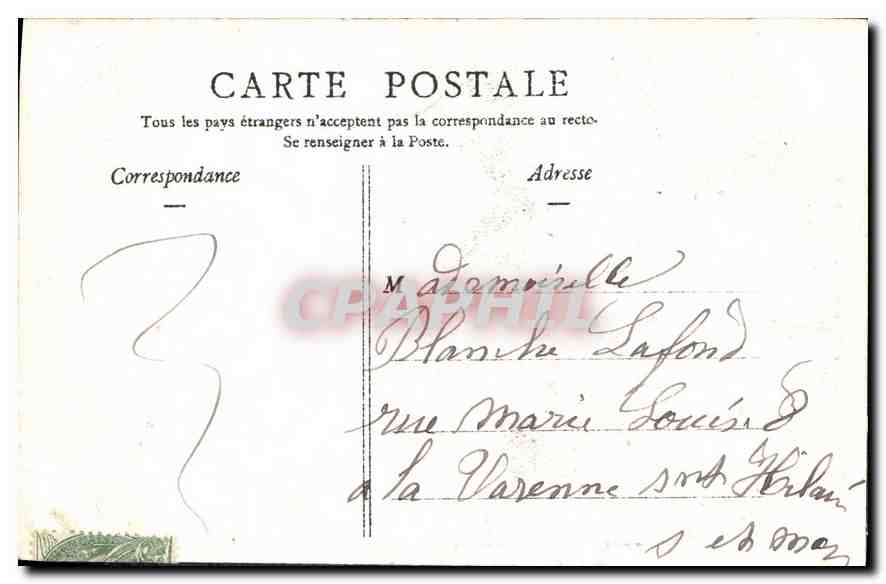 CARTE POSTALE
Tous les pays étrangers n'acceptent pas la correspondance au recto-
Se renseigner à la Poste.
Correspondance
Adresse
Mademoiselle
CPAPHIL
Blanche Lafond
rue Marie Louise 8
a la Varenne snt Hilair
s et mar